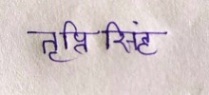 तृप्ति सिंह